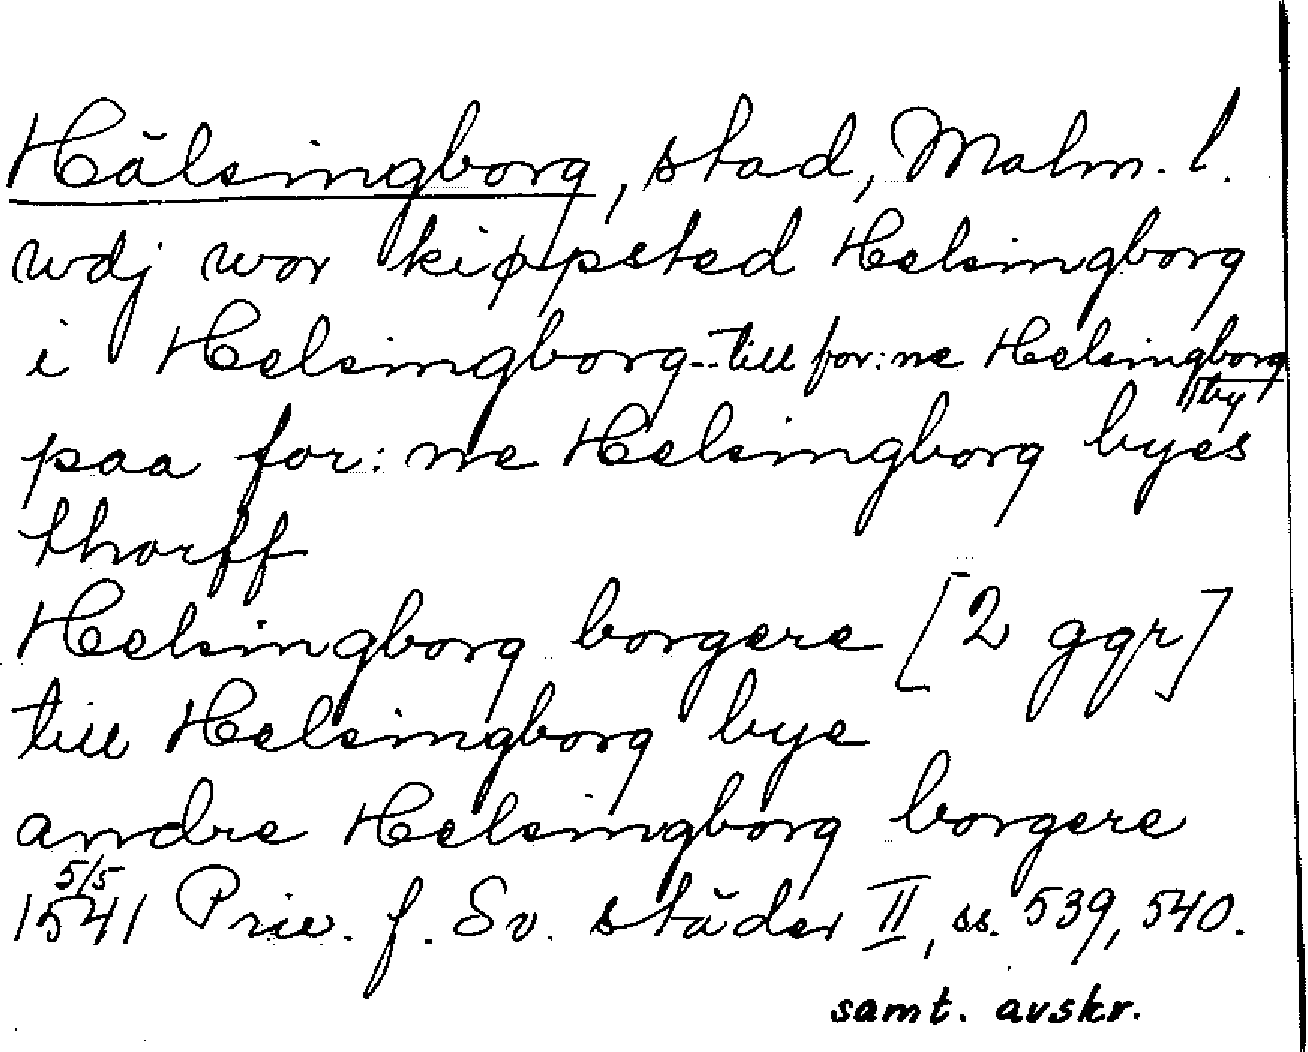 Hälsingborg, stad, Malm. l.
wdj wor kiøpsted Helsingborg
i Helsingborg - till for:ne Helsingborg
by
paa for:ne Helsingborg byes
thorff
Helsingborg borgere [2 ggr]
till Helsingborg bye
andre Helsingborg borgere
5/5
1541 Priv. f. Sv. städer II, ss. 539, 540.
samt. avskr.